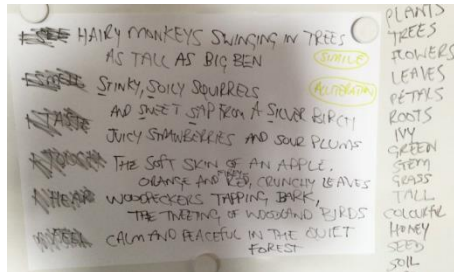 HAIRY MONKEYS SWINGING IN TREES
AS TALL AS BIG BEN
SIMILE
STINKY, SOILY SQUIRRELS
ALLITERATION
AND SWEET SAP FROM A SILVER BIRCH
TASTE
JUICY STRAWBERRIES AND SOUR PLUMS
THE SOFT SKIN OF AN APPLE,
ORANGE AND RED, CRUNCHY LEAVES
WOODPECKERS TAPPING BARK,
THE TWEETING OF WOODLAND BIRDS
CALM AND PEACEFUL IN THE QUIET
FOREST
PLANTS
TREES
FLOWERS
LEAVES
PETALS
ROOTS
IVY
GREEN
STEM
GRASS
TALL
COLOURFUL
HONEY
SEED
SOIL